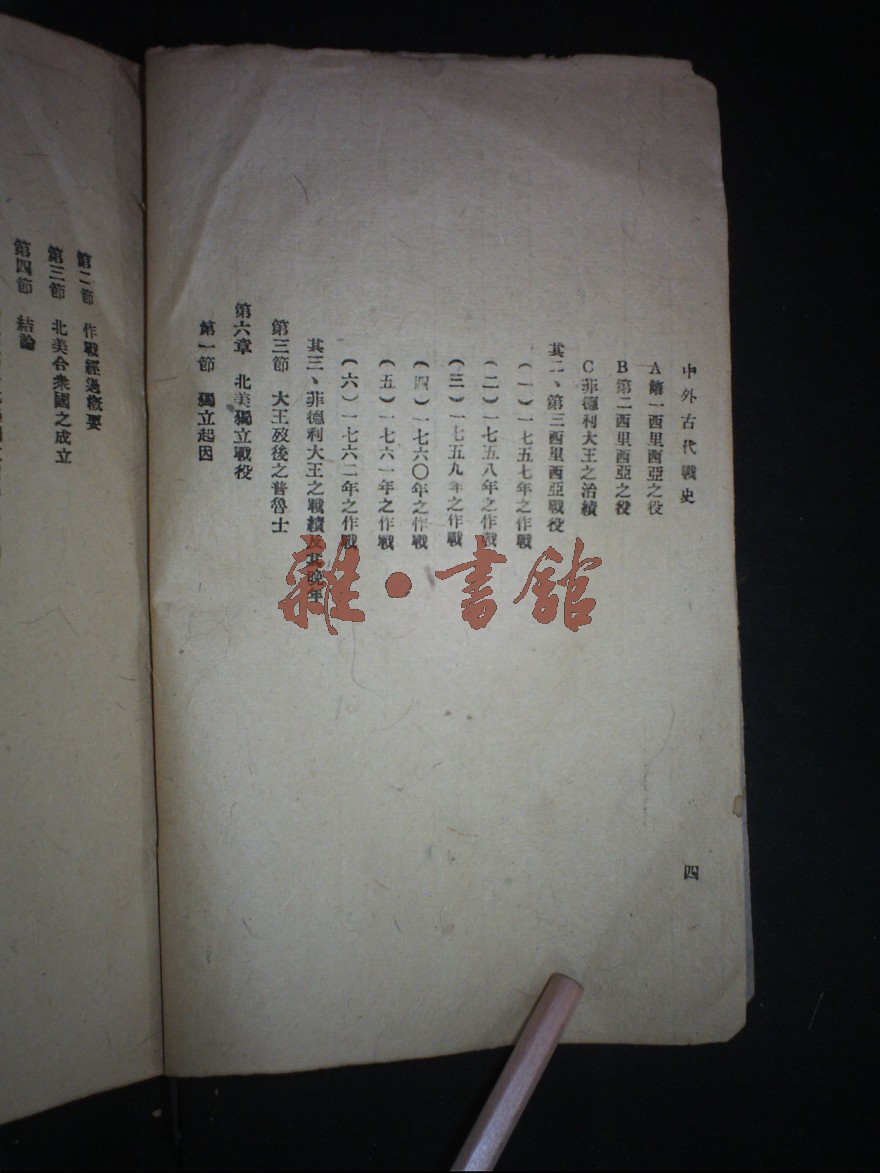 中外古代戰史
四
A第一西里西亞之役
B第二西里西亞之役
C菲德利大王之治績
其二、第三西里西亞戰役
（一）一七五七年之作戰
（二）一七五八年之作戰
（三）一七五九年之作戰
（四）一七六〇年之作戰
（五）一七六一年之作戰
（六）一七六二年之作戰
其三、菲德利大王之戰績及其晚年
第三節 大王歿後之普魯士
第六章 北美獨立戰役
第一節 獨立起因
第二節 作戰經過概要
第三節 北美合衆國之成立
第四節 結論
雜·書館